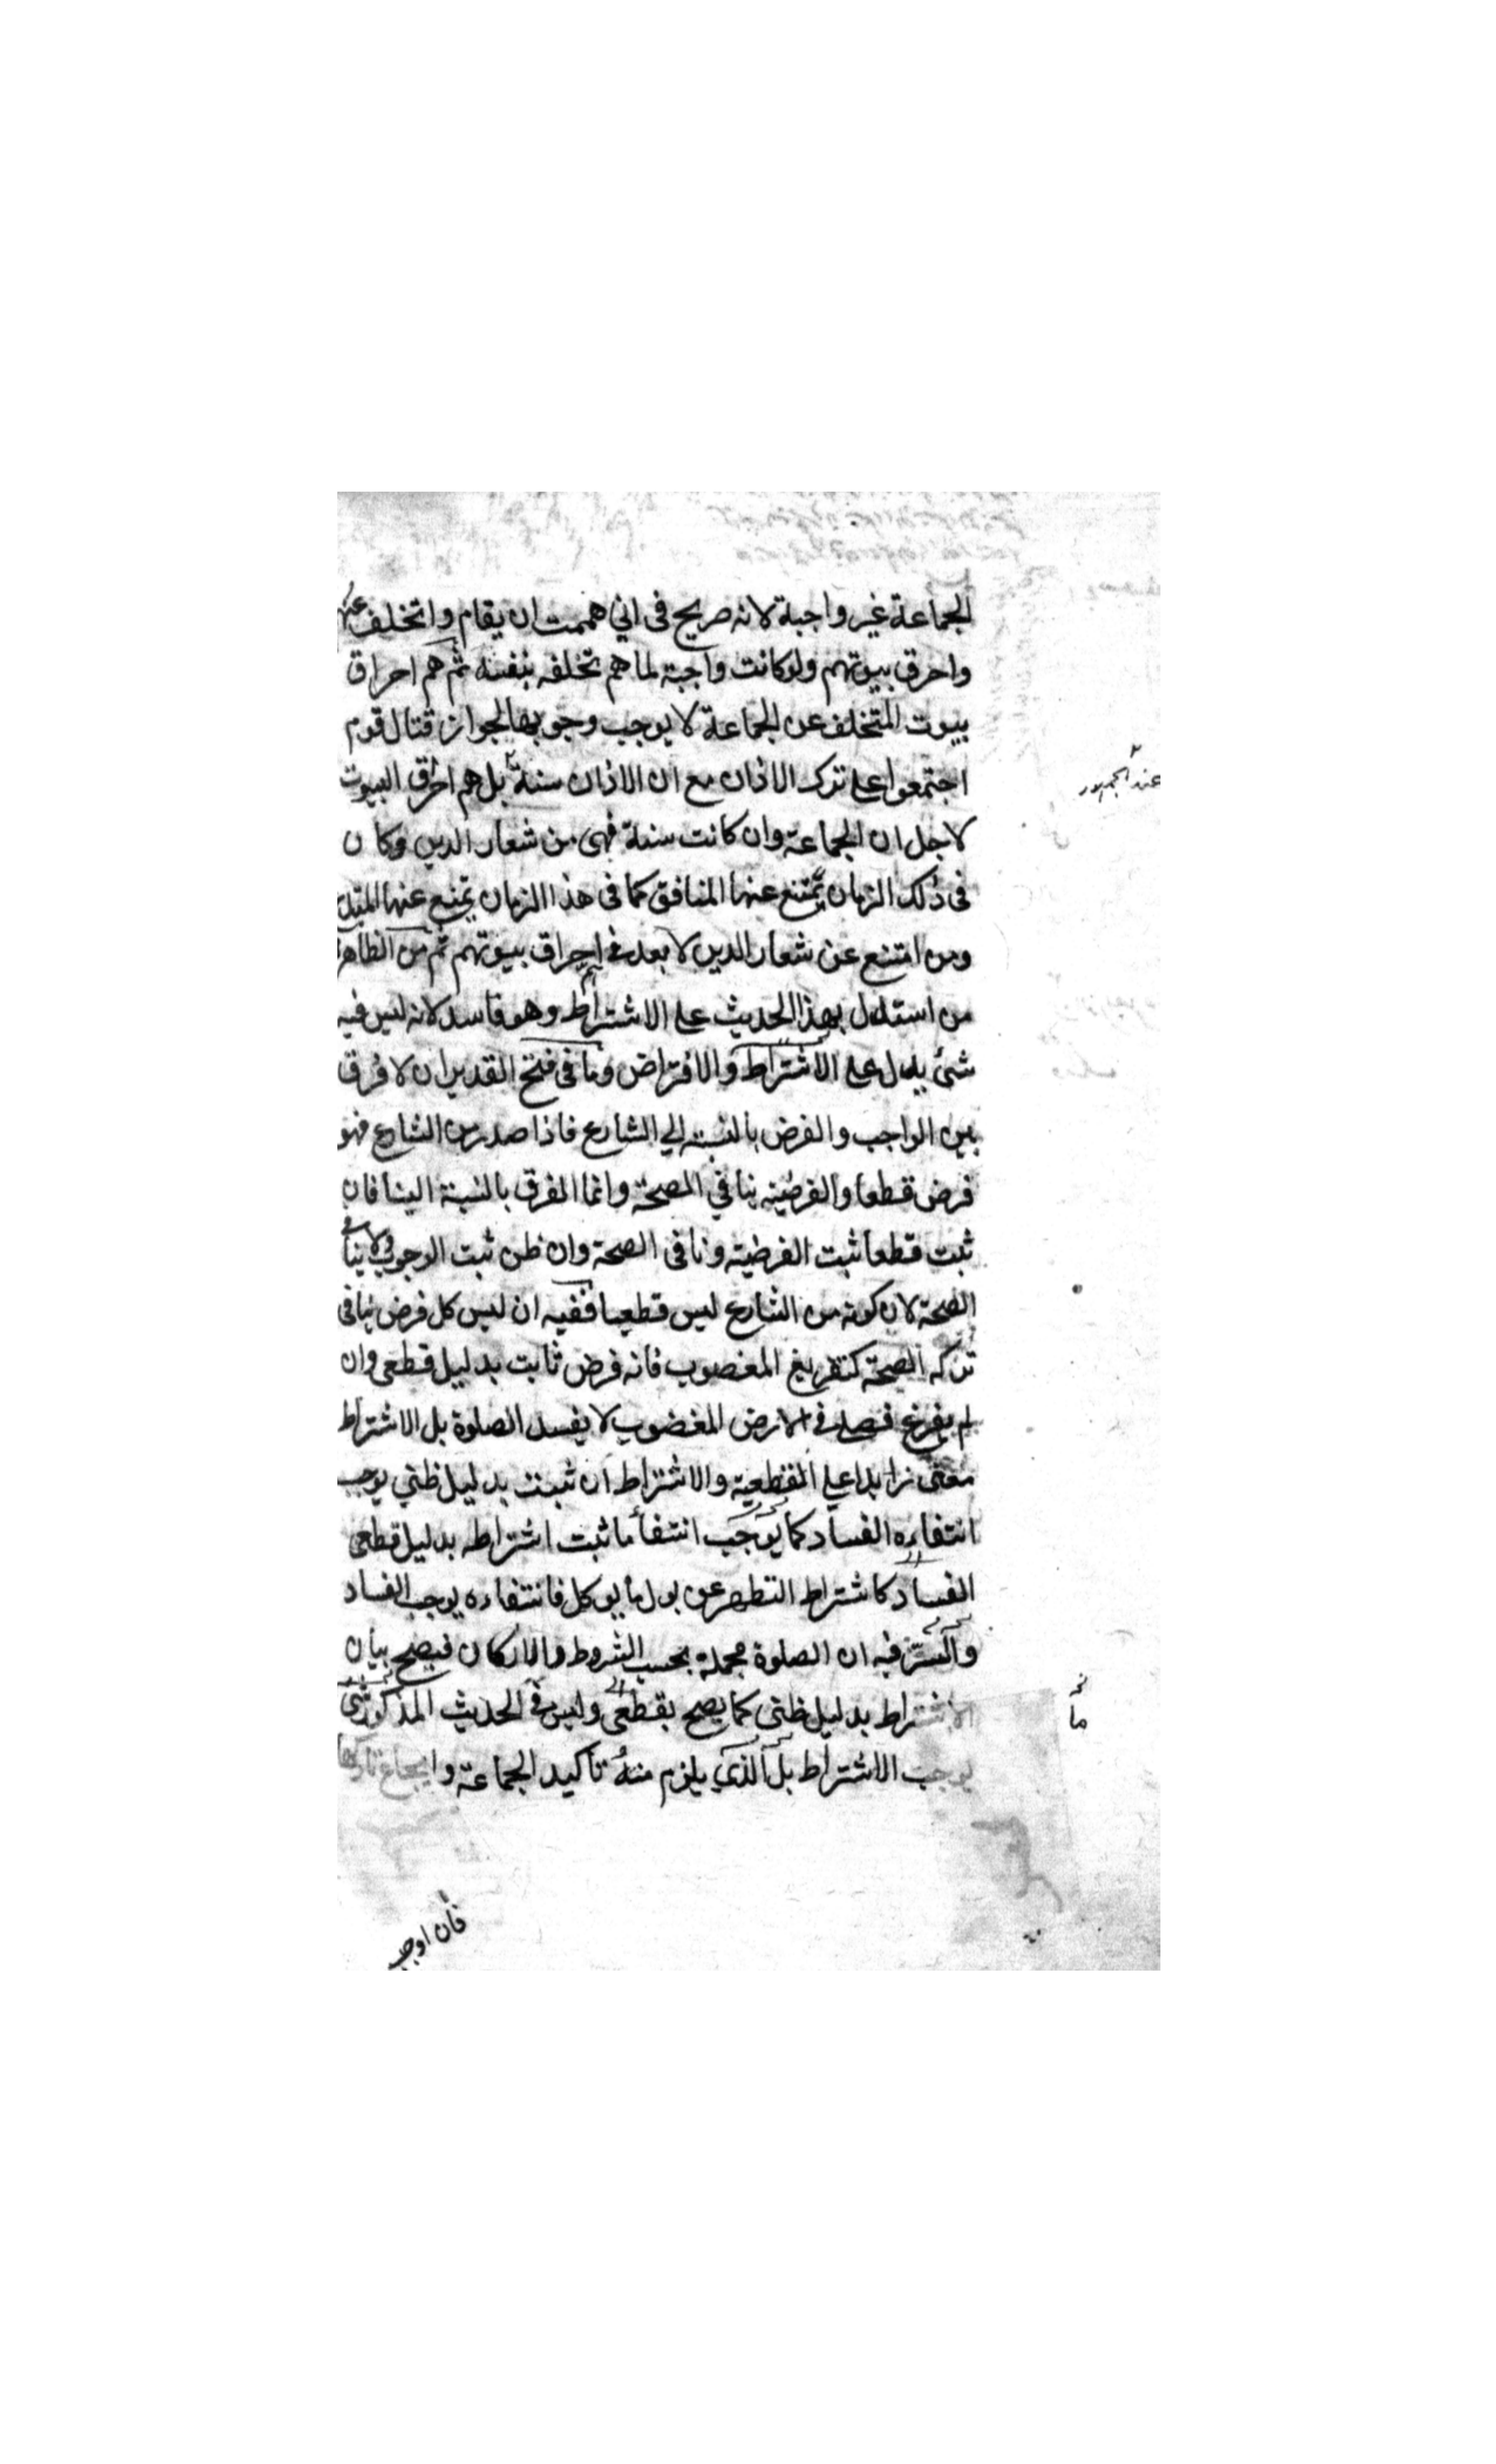 الجماعة غير واجبة لانه صريح فى اني هممت ان يقام واتخلف عنها
واحرق بيوتهم ولو كانت واجبة لما هم تخلفه بنفسه ثم هم احراق
بيوت المتخلف عن الجماعة لا يوجب وجوبها لجواز قتال قوم
اجتمعوا على ترك الاذان مع ان الاذان سنة بل هم احرق البيوت
عند الجمهور
لاجل ان الجماعة وان كانت سنة فهى من شعار الدين وكان
فى ذلك الزمان يمتنع عنها المنافق كما فى هذا الزمان يمتنع عنها
ومن امتنع عن شعار الدين لا بعد فى احراق بيوتهم ثم من الظاهر
من استدل بهذا الحديث على الاشتراط وهو فاسد لانه ليس فيه
شئ يدل على الاشتراط والافتراض وما فى فتح القدير ان لا فرق
بين الواجب والفرض بالنسبة الي الشارع فاذا صدر من الشارع فهو
فرض قطعا والفرضية ينافي الصحة وانما الفرق بالنسبة الينا فان
ثبت قطعا ثبت الفرضية ونافى الصحة وان ظن ثبت الوجوب ولا ينافى
الصحة لان كونه من الشارع ليس قطعيا ففيه ان ليس كل فرض ينافى
تركه الصحة كتفريغ المغصوب فانه فرض ثابت بدليل قطعى وان
لم يفرغ فصلى فى الارض المغضوب لا يفسد الصلوة بل الاشتراط
معنى زايدا على القطعية والاشتراط ان ثبت بدليل ظنى يوجب
انتفاءه الفساد كما يوجب انتفأ ما ثبت اشتراطه بدليل قطعى
الفساد كاشتراط التطهر عن بول ما يوكل فانتفاءه يوجب الفساد
والسر فيه ان الصلوة مجملة بحسب الشروط والاركان فيصح بيان
الاشتراط بدليل ظنى كما يصح بقطعى وليس فى الحديث المذكور شئ
ما
يوجب الاشتراط بل الذي يلزم منه تاكيد الجماعة و
فان اوجب